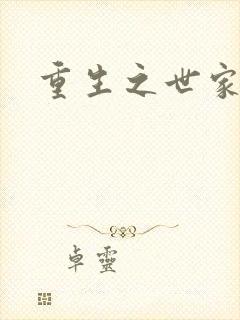 重生之世家
卓靈